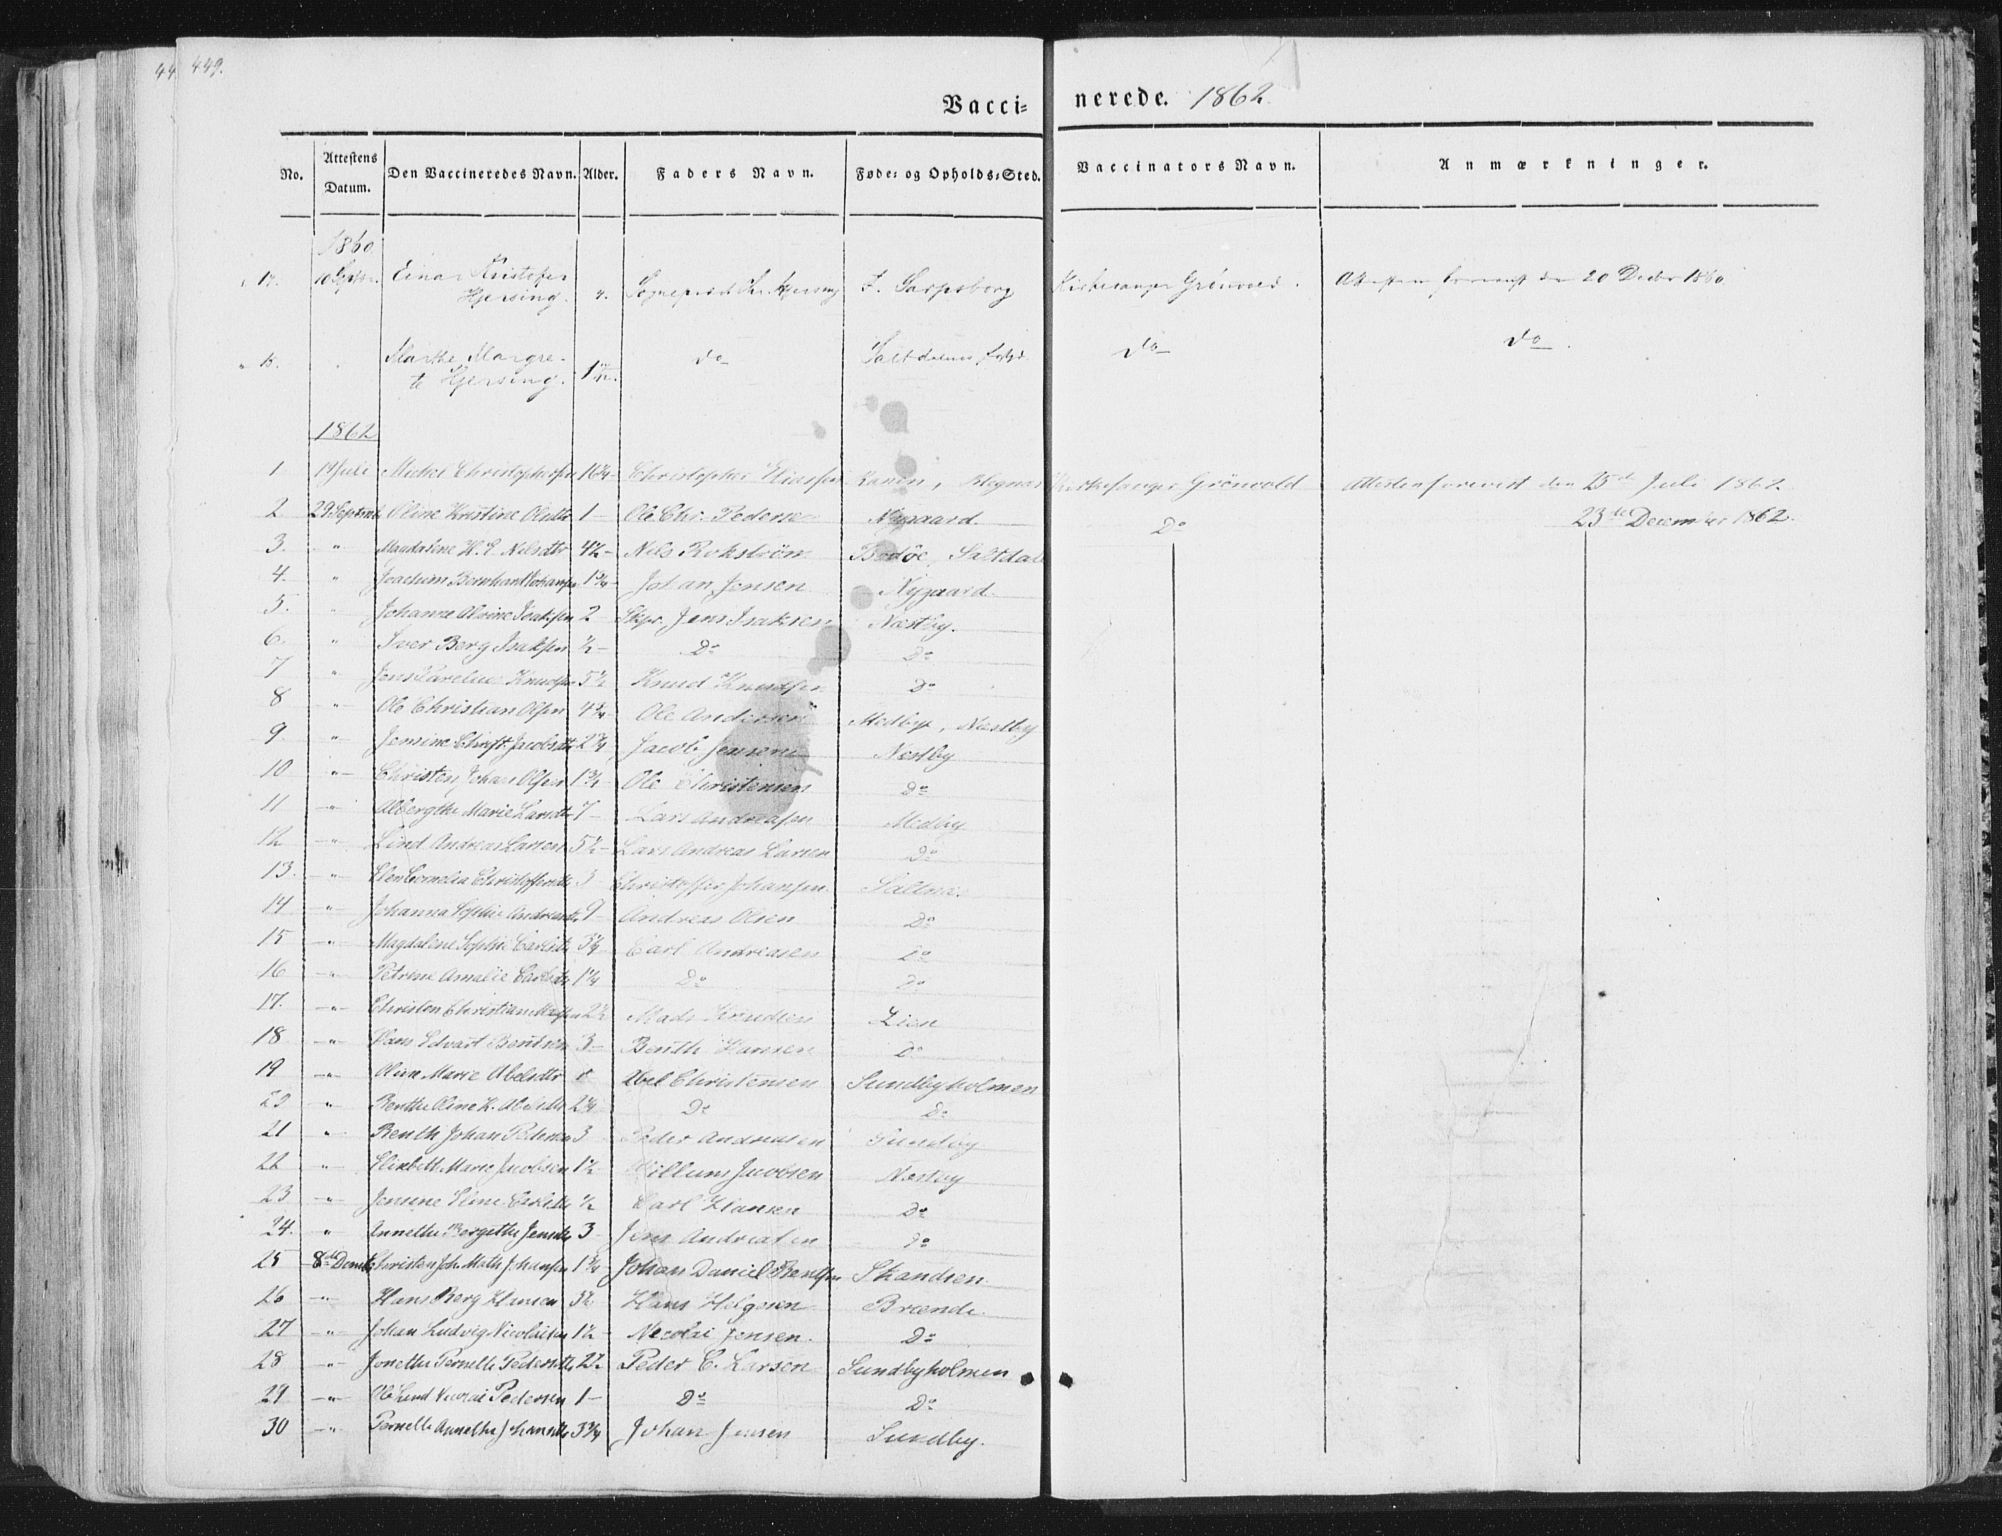 449.
Vacci- nerede. 1862.
No. Attestens Datum. Den Vaccineredes Navn. Alder. Faders Navn. Føde- og Opholds-Sted. Vaccinators Navn. Anmærkninger.
1860
17. 10 Septbr. Einar Kristofer Hjersing. F. Sarpsborg Kirkesanger Grönvold. Attesten forevist den 20 Decbr 1860
18. Marthe Margrete Hjersing. do Saltdalen do do
1862
1 14 Juli Mickel Christophersen 10¼ Christopher Eliassen Ranen, Kirkesanger Grönvold Attesten forevist den 25de Juli 1862
2 29 Septemb Oline Kristine Olsdtr 1 Ole Chr. Pedersen Nygaard. Do 23de December 1862.
3. " Magdalene H. E. Nilsdtr 4½ Nils Rokström Bodöe, Saltdal
4. " Joachim Bernhard Johansen 1¾ Johan Jensen Nygaard.
5. " Johanna Alvine Isaksen 2 Skpr. Jens Isaksen Næstby.
6. " Iver Berg Isaksen ½ Do Do
7 " Jens Parelius Knudsen 5½ Knud Knudsen Do
8 " Ole Christian Olsen 4¾ Ole Andersen Medbye, Næstby
9 " Jensine Christ. Jacobsdtr 2¼ Jacob Jensen Næstby
10 " Christen Johan Olsen 1¾ Ole Christensen Do
11 " Albergthe Marie Larsdtr 7 Lars Andreasen Medby
12 " Lind Andreas Larsen 5½ Lars Andreas Larsen Do
13. " Elen Cornelia Christoffersdtr 3 Christoffer Johansen Saltnes
14 " Johanna Sophie Andreasdtr 9 Andreas Olsen Do
15 " Magdalene Sophie Carlsdtr 3¼ Carl Andreasen Do
16 " Petrine Amalie Carlsdtr 1¼ Do Do
17. " Christen Christian Madsen 2½ Mads Knudsen Lien
18 " Hans Edvart Bentsen 3 Benth Hansen Do
19 " Oline Marie Abelsdtr Abel Christensen Sundbyholmen
20 " Benthe Oline K. Abelsdtr 2¼ Do Do
21 " Benth Johan Pedersen 3 Peder Andreasen Sundby
22 " Elisbett Marie Jacobsen 1½ Villum Jacobsen Næstby
23 " Jensine Eline Carlsdtr ½ Carl Hansen Do
24. " Annethe Bergethe Jensdtr 3 Jens Andreasen Do
25 8de Decmb Christen Joh. Math. Johansen 1¾ Johan Daniel Bentsen Skandsen
26 " Hans Berg Hansen 3½ Hans Helgesen Brænde.
27 " Johan Ludvig Nicolaisen 1½ Nicolai Jensen. Do
28 " Jonethe Pernelle Pedersdtr 2½ Peder C. Larsen Sundbyholmen
29 " Ole Lund Nicolai Pedersen 1 Do Do
30 " Pernelle Annethe Johansdtr 3¾ Johan Jensen Sundby.